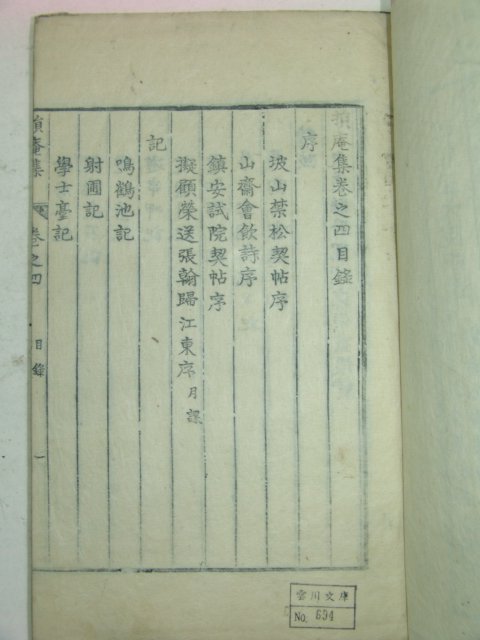 損庵集卷之四目錄
序
坡山禁松契帖序
山齋會飮詩序
鎭安試院契帖序
擬顧榮送張翰歸江東序 月課
記
鳴鶴池記
射圃記
學士臺記
損庵集 卷之四 目錄 一
雲川文庫
No. 694